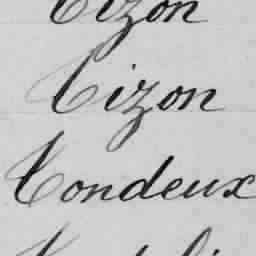 Tizon
Tizon
Tondeux